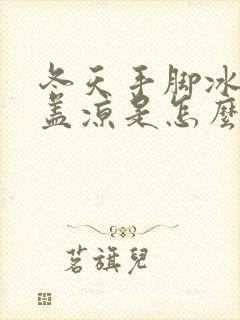 冬天手脚冰
盖凉是怎麼
茗旗兒